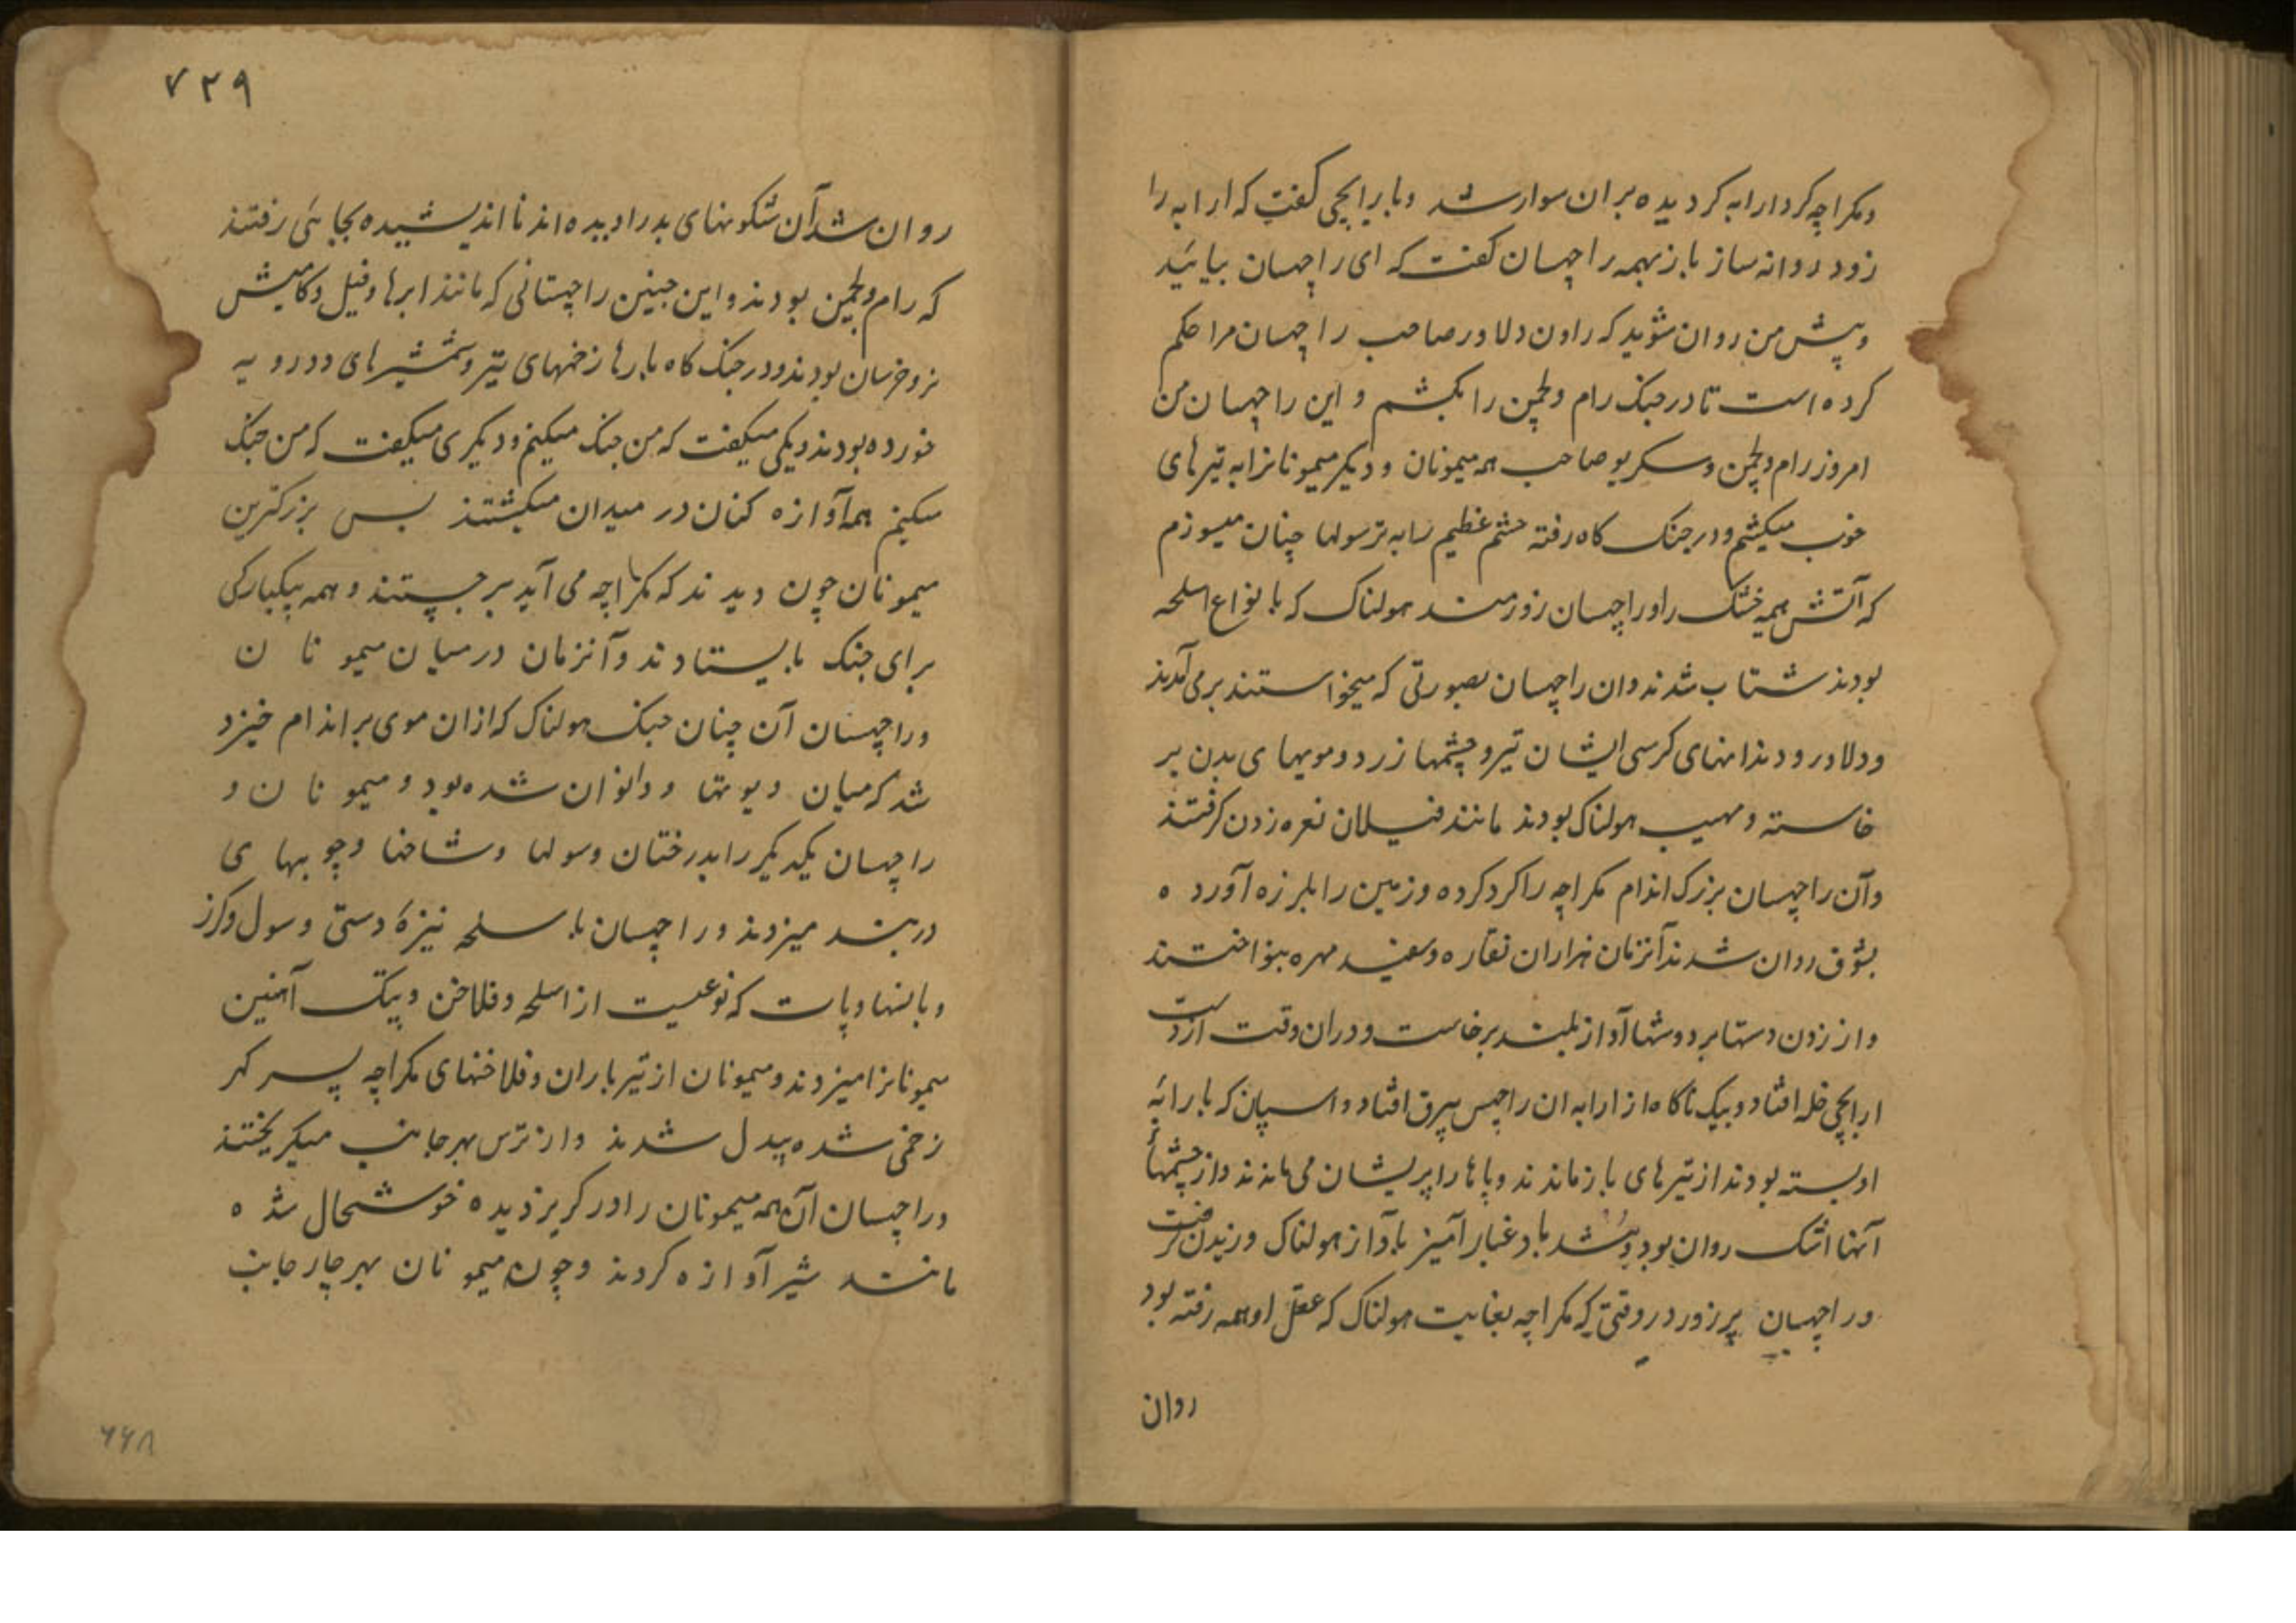 ومکراچه کرد ارابه کردیده بران سوار شد و با برابچی کفت که ارابه را
زود روانه ساز باز بهمه راچهسان کفت که ای راچهسان بیائید
وپیش من روان شوید که راون دلاور صاحب راچهسان مرا حکم
کرده است تا در جنک رام ولچمن را بکشم و این راچهسان من
امروز رام ولچمن وسکریو صاحب همه میمونان ودیکر میمونانرا به تیرهای
خوب میکشم ودر جنک کاه رفته حشم عظیم را به ترسولها چنان میسوزم
که آتش هیمه خشک را وراچهسان زورمند هولناک که با نواع اسلحه
بودند شتاب شدند وان راچهسان بصورتی که میخواستند برمی آمدند
ودلاور و دندانهای کرسی ایشان تیر وچشمها زرد ومویهای بدن بر
خاسته ومهیب هولناک بودند مانند فیلان نعره زدن کرفتند
وآن راچهسان بزرک اندام مکراچه را کرد کرده وزمین را بلرزه آورده
بشوق روان شدند آنزمان هزاران نقاره وسفید مهره بنواختند
واز زدن دستها بر دوشها آواز بلند برخاست ودران وقت از دست
ارابچی خله افتاد وبیک ناکاه از ارابه ان راچهس بیرق افتاد واسپان که بارابهٔ
او بسته بودند از تیرهای باز ماندند وپاها را پریشان می ماندند واز چشمهأ
آنها اشک روان بود وتند باد غبار آمیز باواز هولناک وزیدن کرفت
وراچهسان پرزور در وقتی که مکراچه بغایت هولناک که عقل او همه رفته بود
روان
۷۲۹
روان شد آن شکونهای بد را دیده اند نا اندیشیده بجایی رفتند
که رام ولچمن بودند واین چنین راچهسانی که مانند ابرها وفیل وکامیش
نر وخرسان بودند ودر جنک کاه بارها زخمهای تیر وشمشیرهای دو رویه
خورده بودند ویکی میکفت که من جنک میکنم ودیکری میکفت که من جنک
میکنم همه آوازه کنان در میدان میکشتند پس بزرکترین
میمونان چون دیدند که مکراچه می آید بر جستند وهمه بیکبارکی
برای جنک بایستادند وآنزمان در میان میمونان
وراچهسان آن چنان جنک هولناک که ازان موی بر اندام خیزد
شد که میان دیوتها ودانوان شده بود ومیمونان و
راچهسان یکدیکر را بدرختان وسولها وشاخها وچوبهای
دربند میزدند وراچهسان با سلحه نیزهٔ دستی وسول وکرز
وبالنها وپات که نوعیست از اسلحه وفلاخن وپیک آهنین
میمونانرا میزدند ومیمونان از تیر باران وفلاخنهای مکراچه پسر کهر
زخمی شده بیدل شدند واز ترس بهر جانب میکریختند
وراچهسان آن همه میمونان را در کریز دیده خوشحال شده
مانند شیر آوازه کردند وچون میمونان بهر چار جانب
۶۶۸